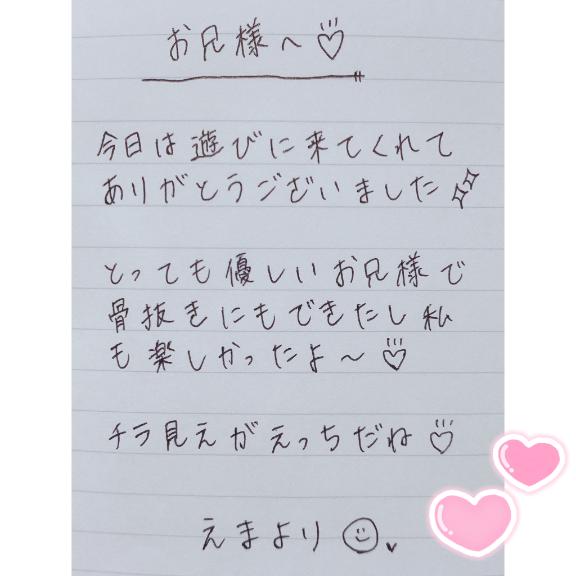 お兄様へ♡
今日は遊びに来てくれて
ありがとうございました✨
とっても優しいお兄様で
骨抜きにもできたし私
も楽しかったよ〜♡
チラ見えがえっちだね♡
えまより☺♥